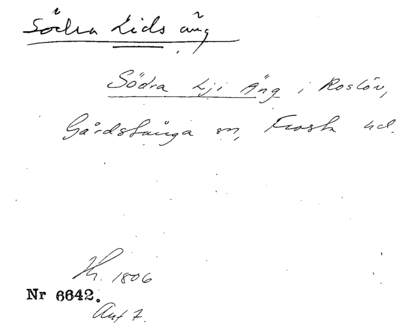 Södra Lids äng
Södra Lji Äng i Roslöv,
Gårdstånga sn, Frosta hd.
Kt. 1806
Nr 6642.
Akt 7.